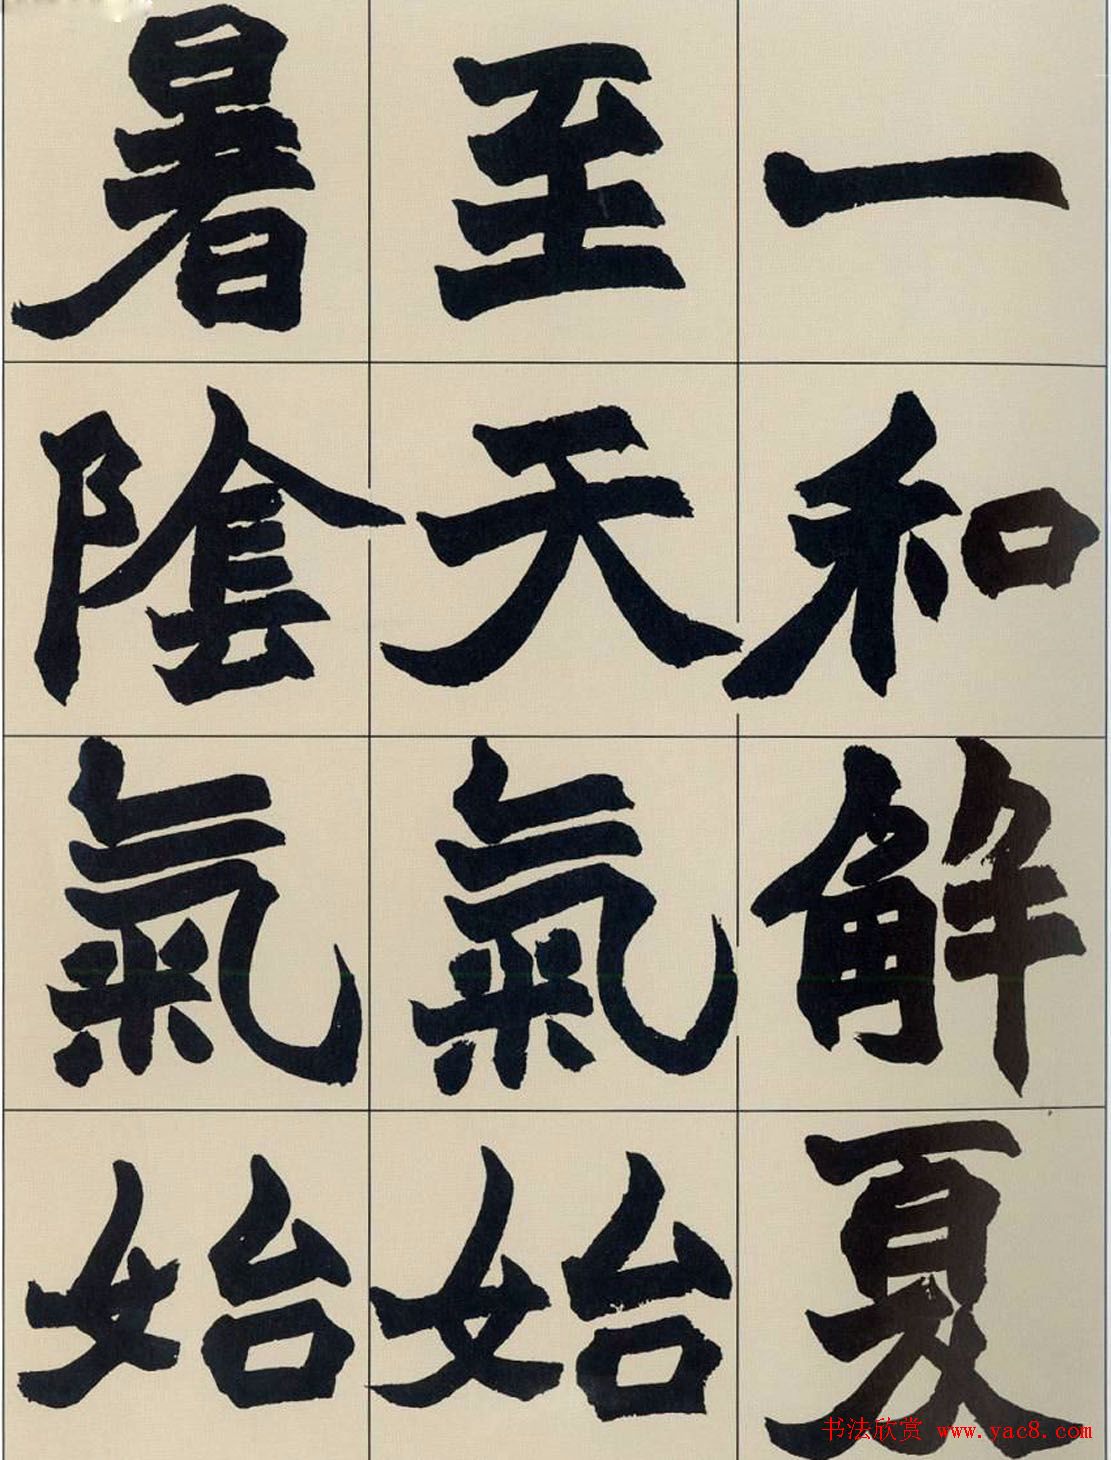 一和解夏
至天氣始
暑陰氣始
书法欣赏 www.yac8.com